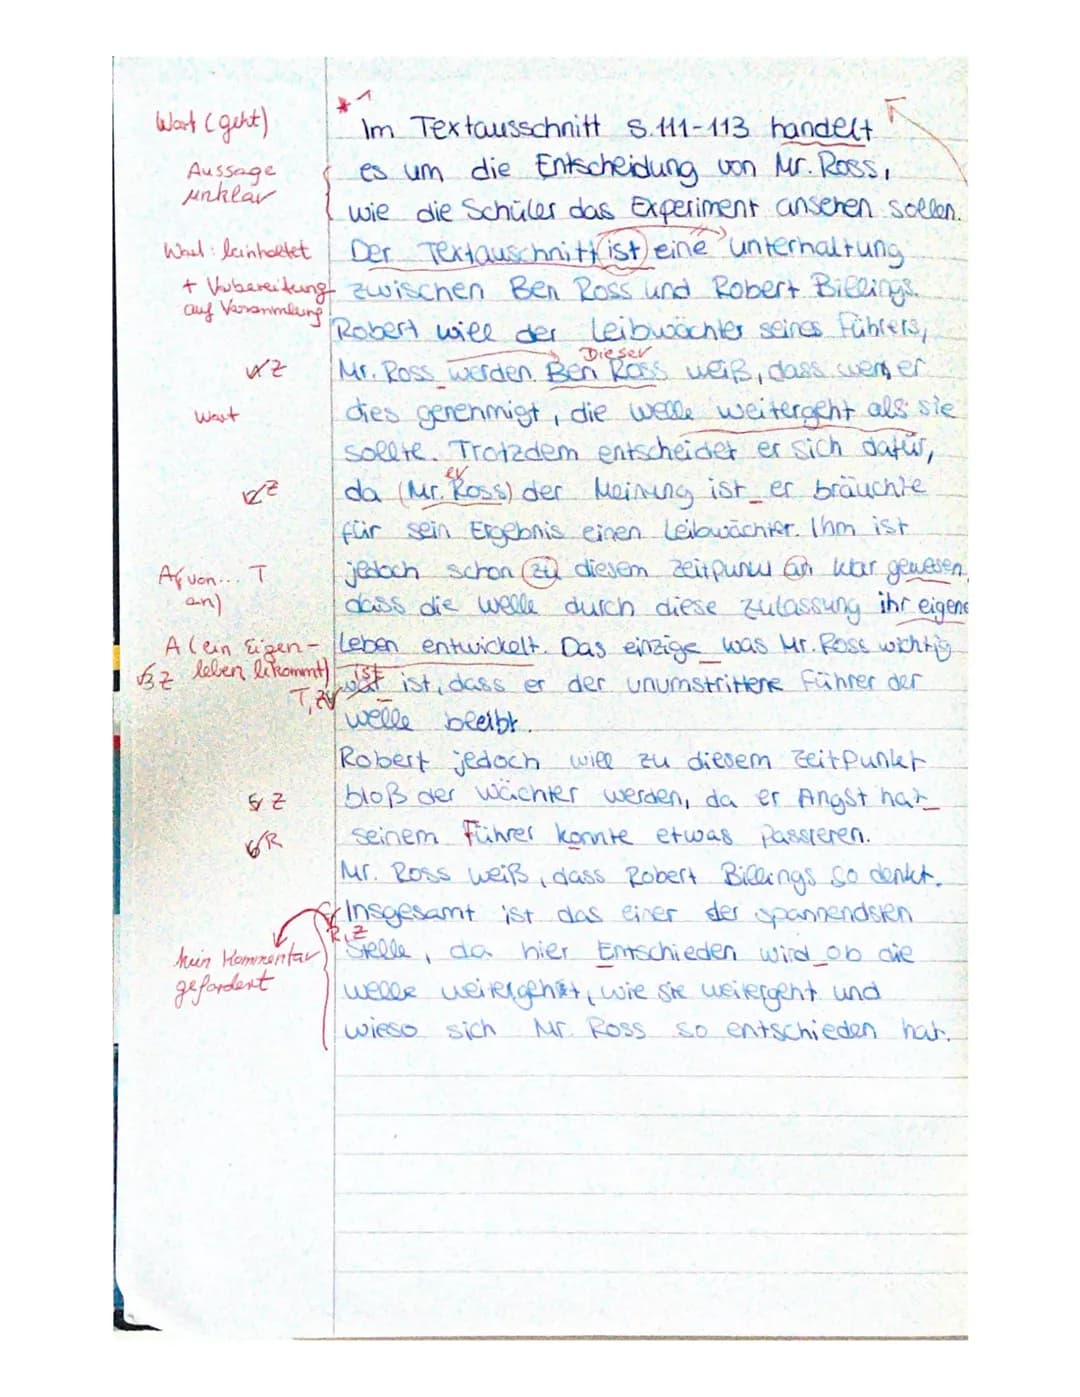 * 1
Wort (geht) Im Textausschnitt S.111-113 handelt
Aussage es um die Entscheidung von Mr. Ross,
unklar wie die Schüler das Experiment ansehen sollen.
Wort: beinhaltet Der Textauschnitt ist eine unterhaltung
+ Vorbereitung zwischen Ben Ross und Robert Billings.
auf Versammlung Robert will der Leibwächter seines Führers,
Dieser
Z Mr. Ross werden. Ben Ross weiß, dass wenn er
Wort dies genehmigt, die welle weitergeht als sie
sollte. Trotzdem entscheidet er sich dafür,
er
Z da (Mr. Ross) der Meinung ist er bräuchte
für sein Ergebnis einen Leibwächter. Ihm ist
A(von... T jedoch schon zu diesem Zeitpunkt an klar gewesen
an) dass die welle durch diese zulassung ihr eigene
A (ein Eigen- Leben entwickelt. Das einzige was Mr. Ross wichtig
3 Z leben bekommt) ist
T, Z war ist, dass er der unumstrittene Führer der
welle bleibt.
Robert jedoch will zu diesem Zeitpunkt
5 Z bloß der Wächter werden, da er Angst hat
6 R seinem Führer konnte etwas passieren.
Mr. Ross weiß, dass Robert Billings so denkt.
Insgesamt ist das einer der spannendsten
R, Z
kein Kommentar Stelle, da hier Entschieden wird ob die
gefordert welle weitergeht, wie sie weitergeht und
wieso sich Mr. Ross so entschieden hat.